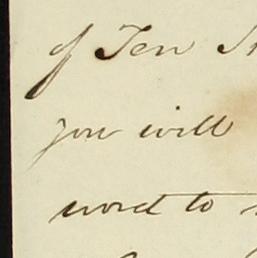 of Ten
you will
word to